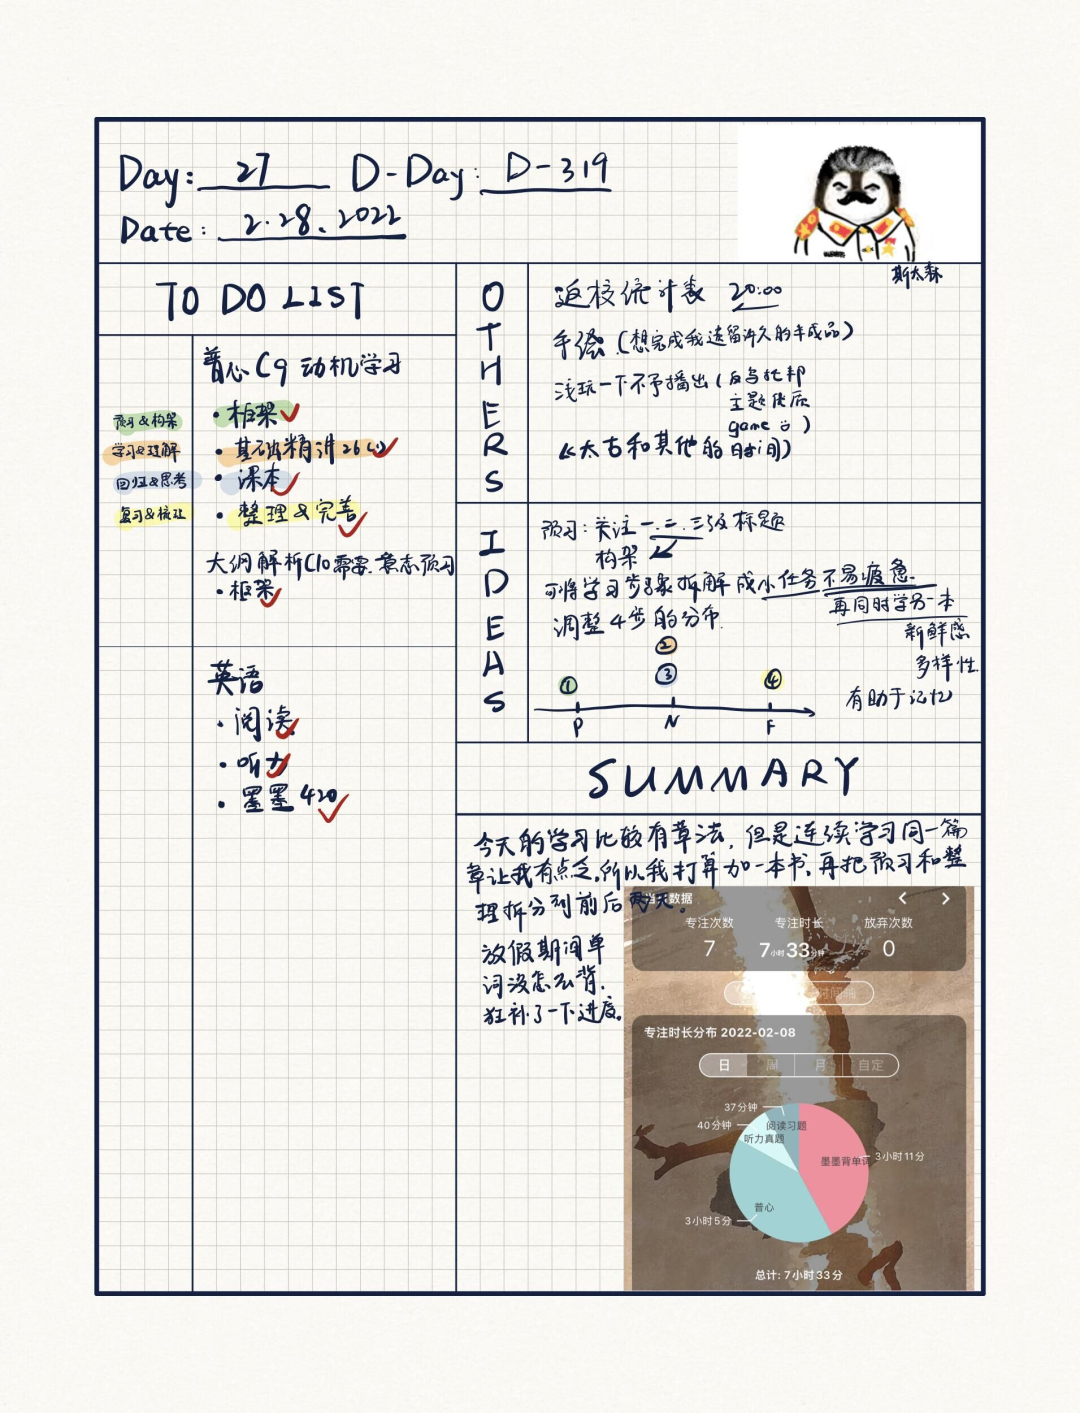 Day: 27 D-Day: D-319
Date: 2.28.2022
斯大森
TO DO LIST
普心C9 动机学习
预习&构架
·框架
学习&理解
·基础精讲26(1)
回归&思考
·课本
复习&梳理
·整理&完善
大纲解析C10需要.意志预习
·框架
英语
·阅读
·听力
·墨墨420
OTHERS
返校统计表 20:00
手偶(想完成我遗留许久的半成品)
浅玩一下不予播出(反乌托邦
主题优质
game )
(太古和其他的时间)
IDEAS
预习:关注一.二.三级标题
构架
可将学习步骤拆解成小任务不易疲惫.
再同时学另一本
调整4步的分布.
新鲜感
多样性
有助于记忆
②
① ③ ④
P N F
SUMMARY
今天的学习比较有章法,但是连续学习同一篇
章让我有点乏.所以我打算加一本书,再把预习和整
理拆分到前后两天。
放假期间单
词没怎么背.
狂补了一下进度。
数据
专注次数 专注时长 放弃次数
7 7小时33分钟 0
专注时长分布 2022-02-08
日 周 月 自定
37分钟
40分钟
阅读习题
听力真题
墨墨背单词
3小时11分
普心
3小时5分
总计: 7小时33分